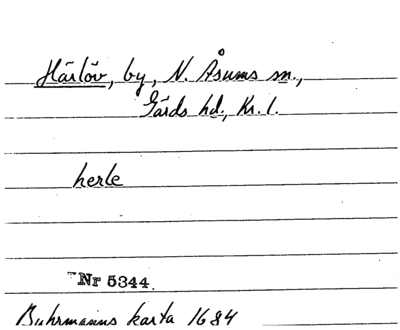 Härlöv, by, N. Åsums sn.,
Gärds hd., Kr. l.
herle
Nr 5344.
Buhrmanns karta 1684